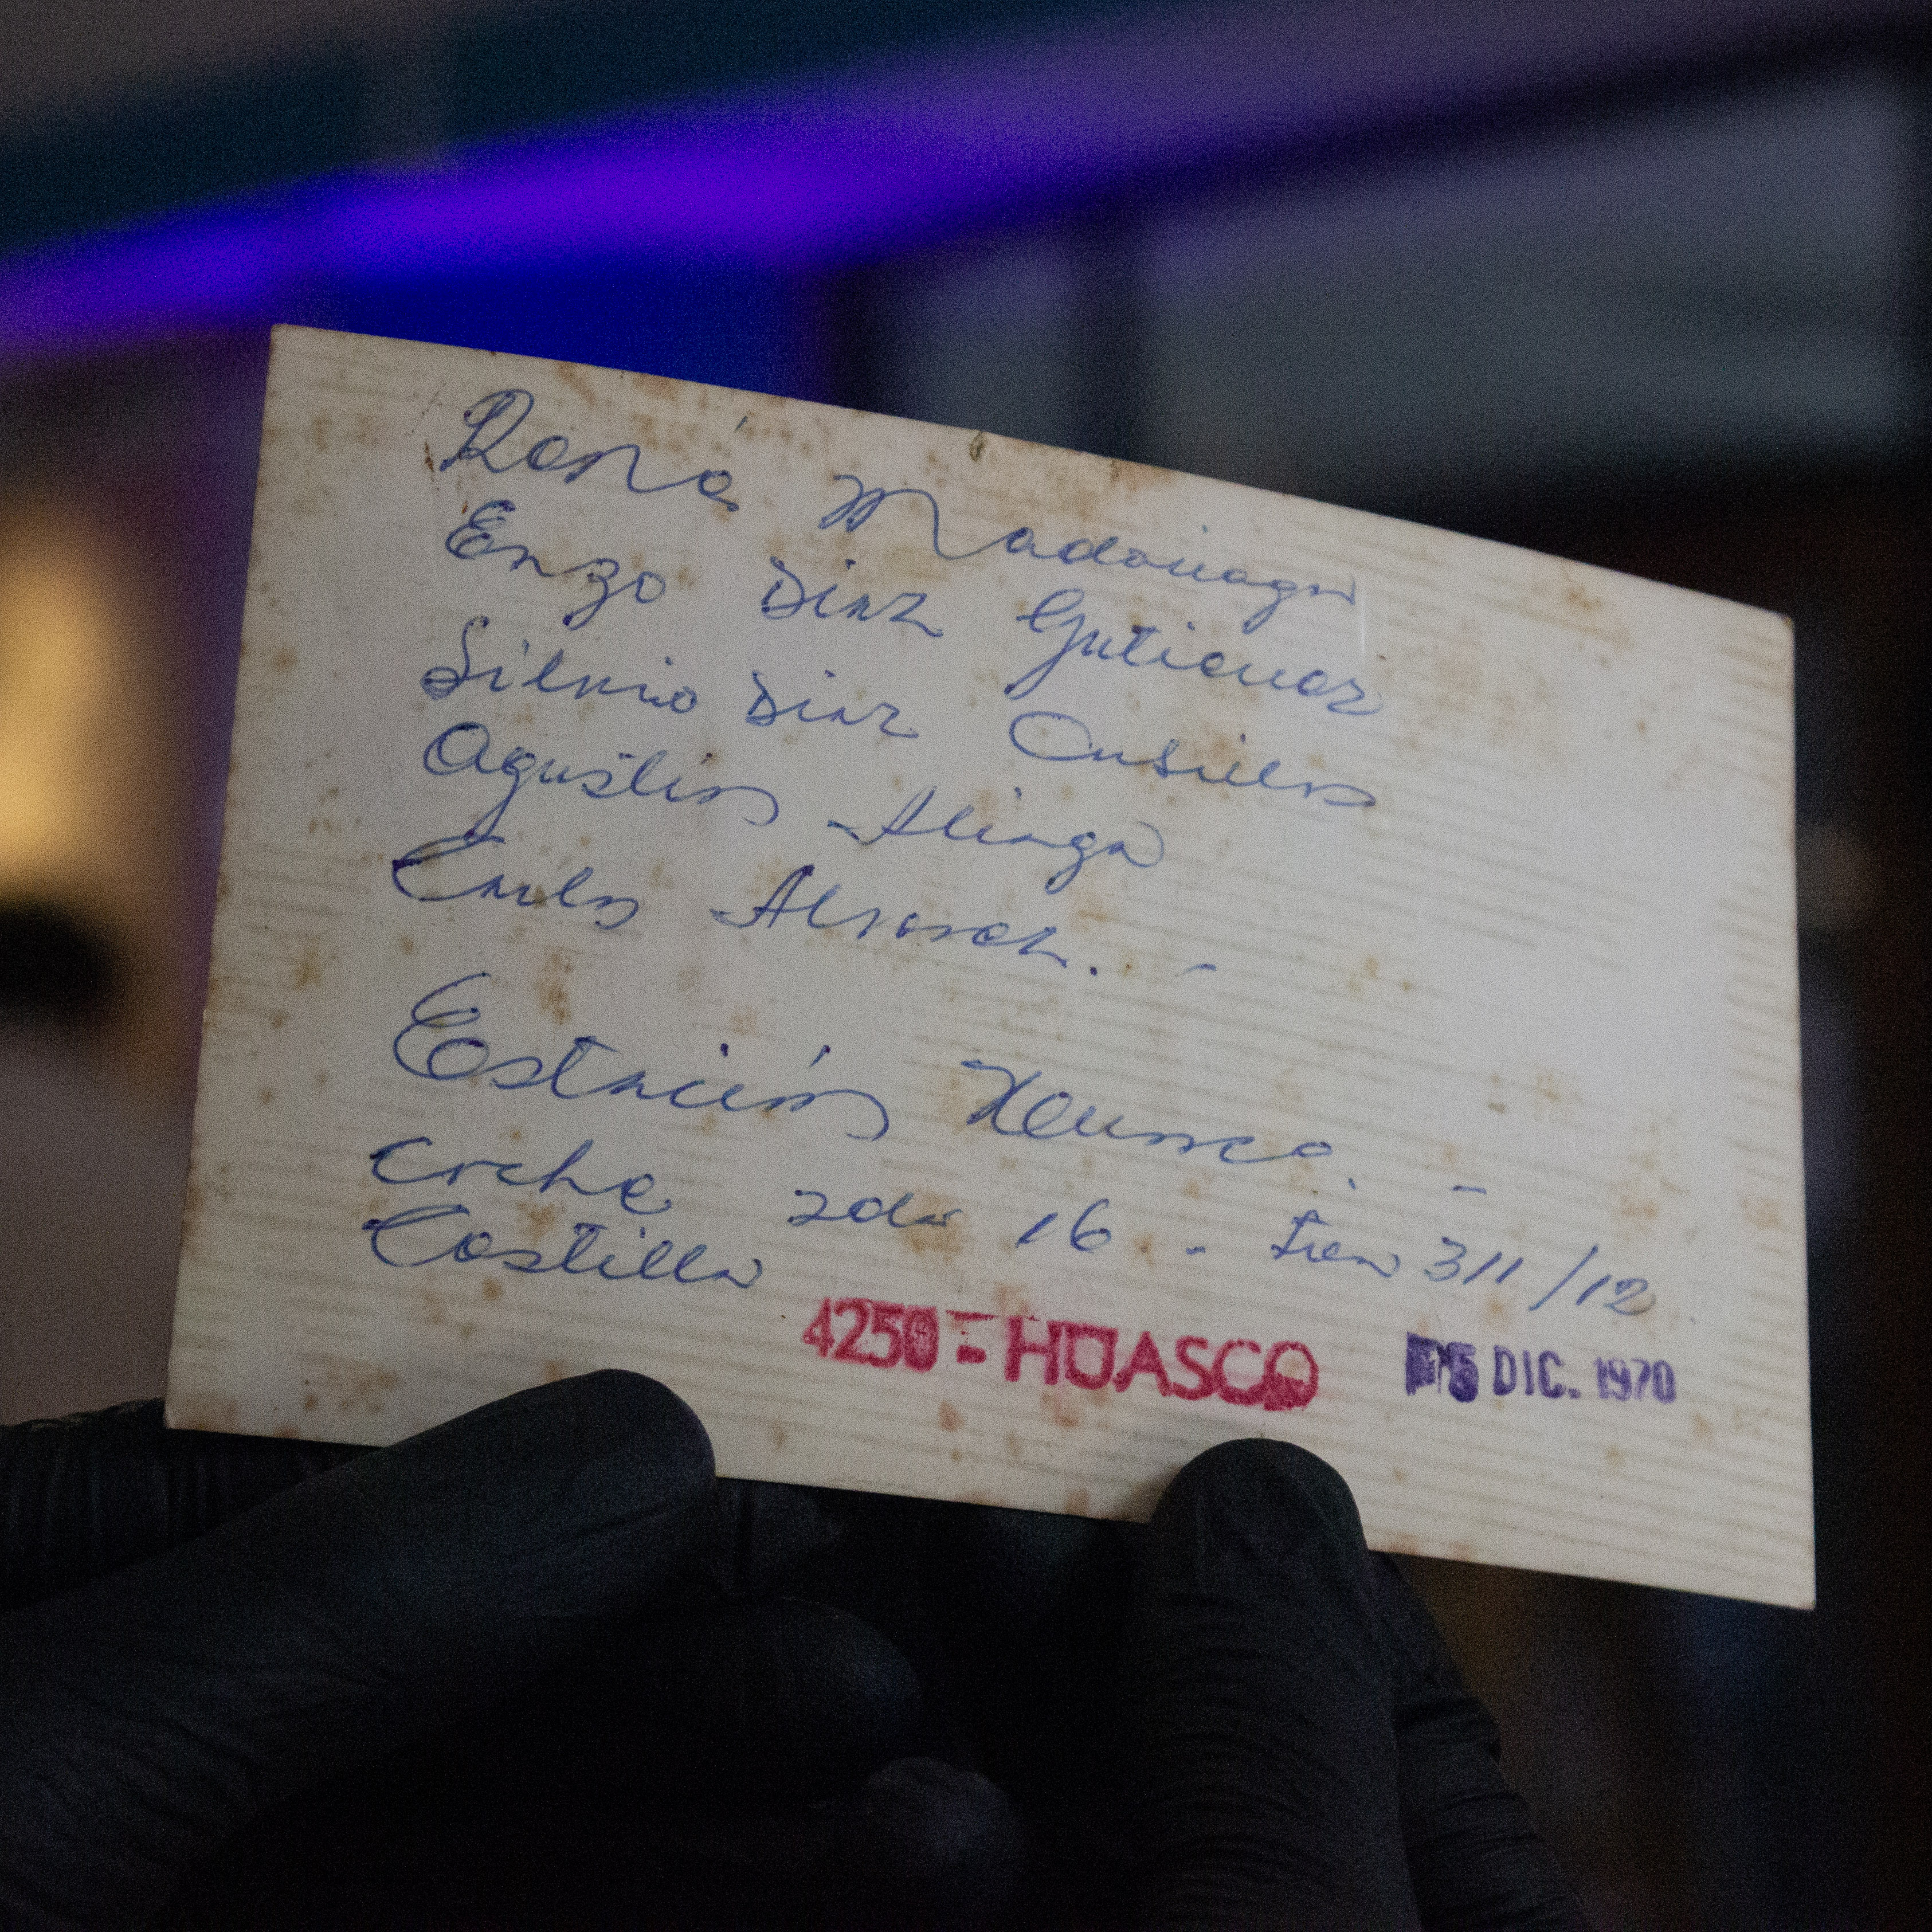 René Madariaga
Enzo Diaz Gutierrez
Silvio Diaz
Agustin Aliaga
Carlos Alvarez. -
Estación Huasco. -
coche 2da 16. - tren 311/12
Castilla
4250 - HUASCO DIC. 1970